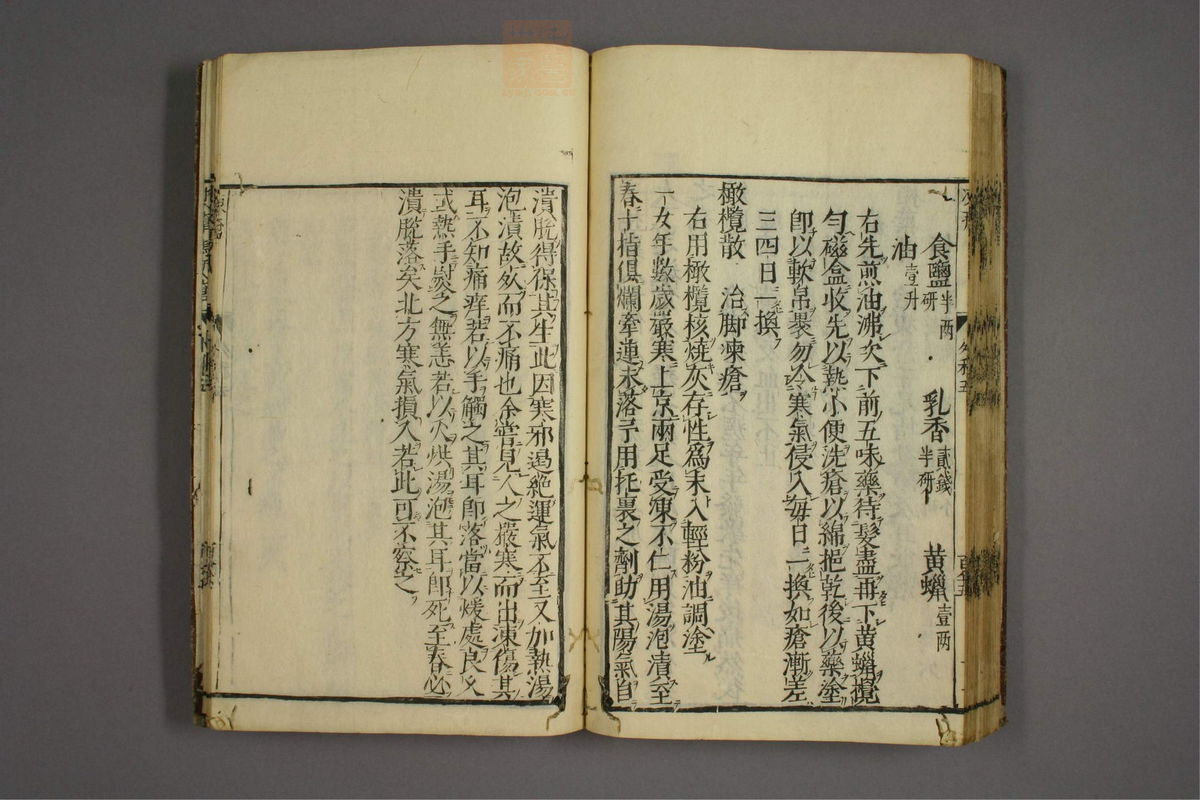 食鹽半兩研 乳香貳錢半研 黃蠟壹兩
油壹升
右先煎油沸次下前五味藥待髮盡再下黃蠟攪
勻磁盒收先以熱小便洗瘡以綿挹乾後以藥塗
即以軟帛褁勿令寒氣侵入每日二換如瘡漸差
三四日一換
橄欖散 治脚凍瘡
右用橄欖核燒灰存性爲末入輕粉油調塗
一女年數歲嚴寒上京兩足受凍不仁用湯泡漬至
春十指俱爛牽連未落予用托裏之劑助其陽氣自
潰脫得保其生此因寒邪遏絶運氣不至又加熱湯
泡漬故死而不痛也余嘗見人之嚴寒而出凍傷其
耳不知痛癢若以手觸之其耳即落當以煖處良久
或熱手熨之無恙若以火烘湯泡其耳即死至春必
潰脫落矣北方寒氣損人若此可不察之